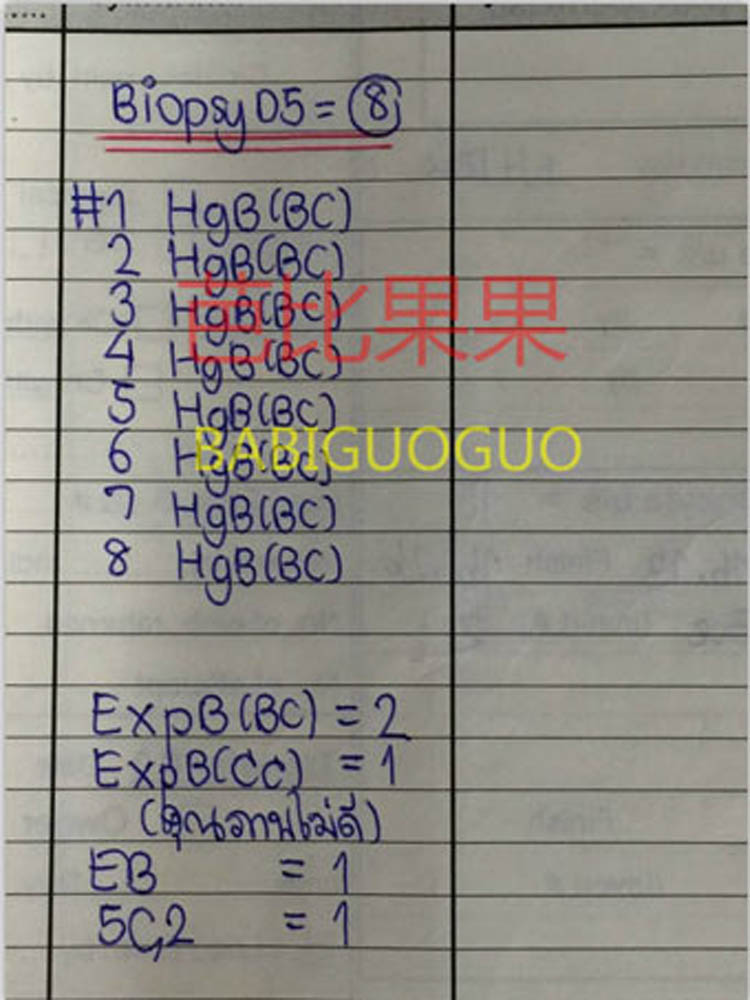 Biopsy D5 = 8
#1 HgB(BC)
2 HgB(BC)
3 HgB(BC)
芭比果果
4 HgB(BC)
5 HgB(BC)
BABIGUOGUO
6 HgB(BC)
7 HgB(BC)
8 HgB(BC)
ExpB(BC) = 2
ExpB(CC) = 1
(คุณภาพไม่ดี)
EB = 1
5C,2 = 1